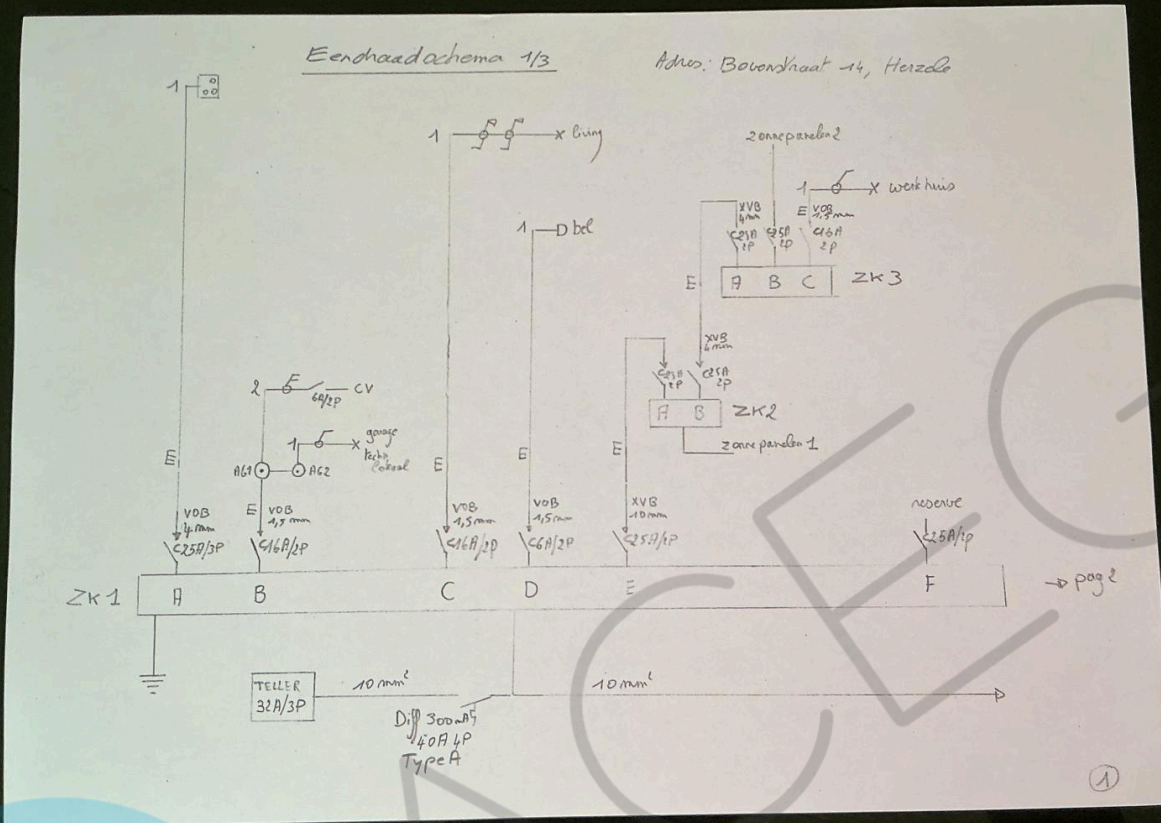 Eendraadschema 1/3
Adres: Bovenstraat 14, Herzele
1
1
living
zonnepanelen 2
1
werkhuis
XVB
4mm
E
VOB
1,5mm
C25A
2P
C25A
2P
C16A
2P
1
bel
E
A
B
C
ZK3
XVB
4mm
C25A
2P
C25A
2P
2
6A/2P
CV
A
B
ZK2
1
garage
techn
lokaal
zonnepanelen 1
E
AG1
AG2
E
E
E
E
VOB
4mm
VOB
1,5mm
VOB
1,5mm
VOB
1,5mm
XVB
10mm
reserve
C25A/3P
C16A/2P
C16A/2P
C6A/2P
C25A/2P
C25A/2P
ZK1
A
B
C
D
E
F
→ pag 2
TELLER
32A/3P
10mm²
10mm²
Diff 300mA
40A 4P
Type A
1
ACEG